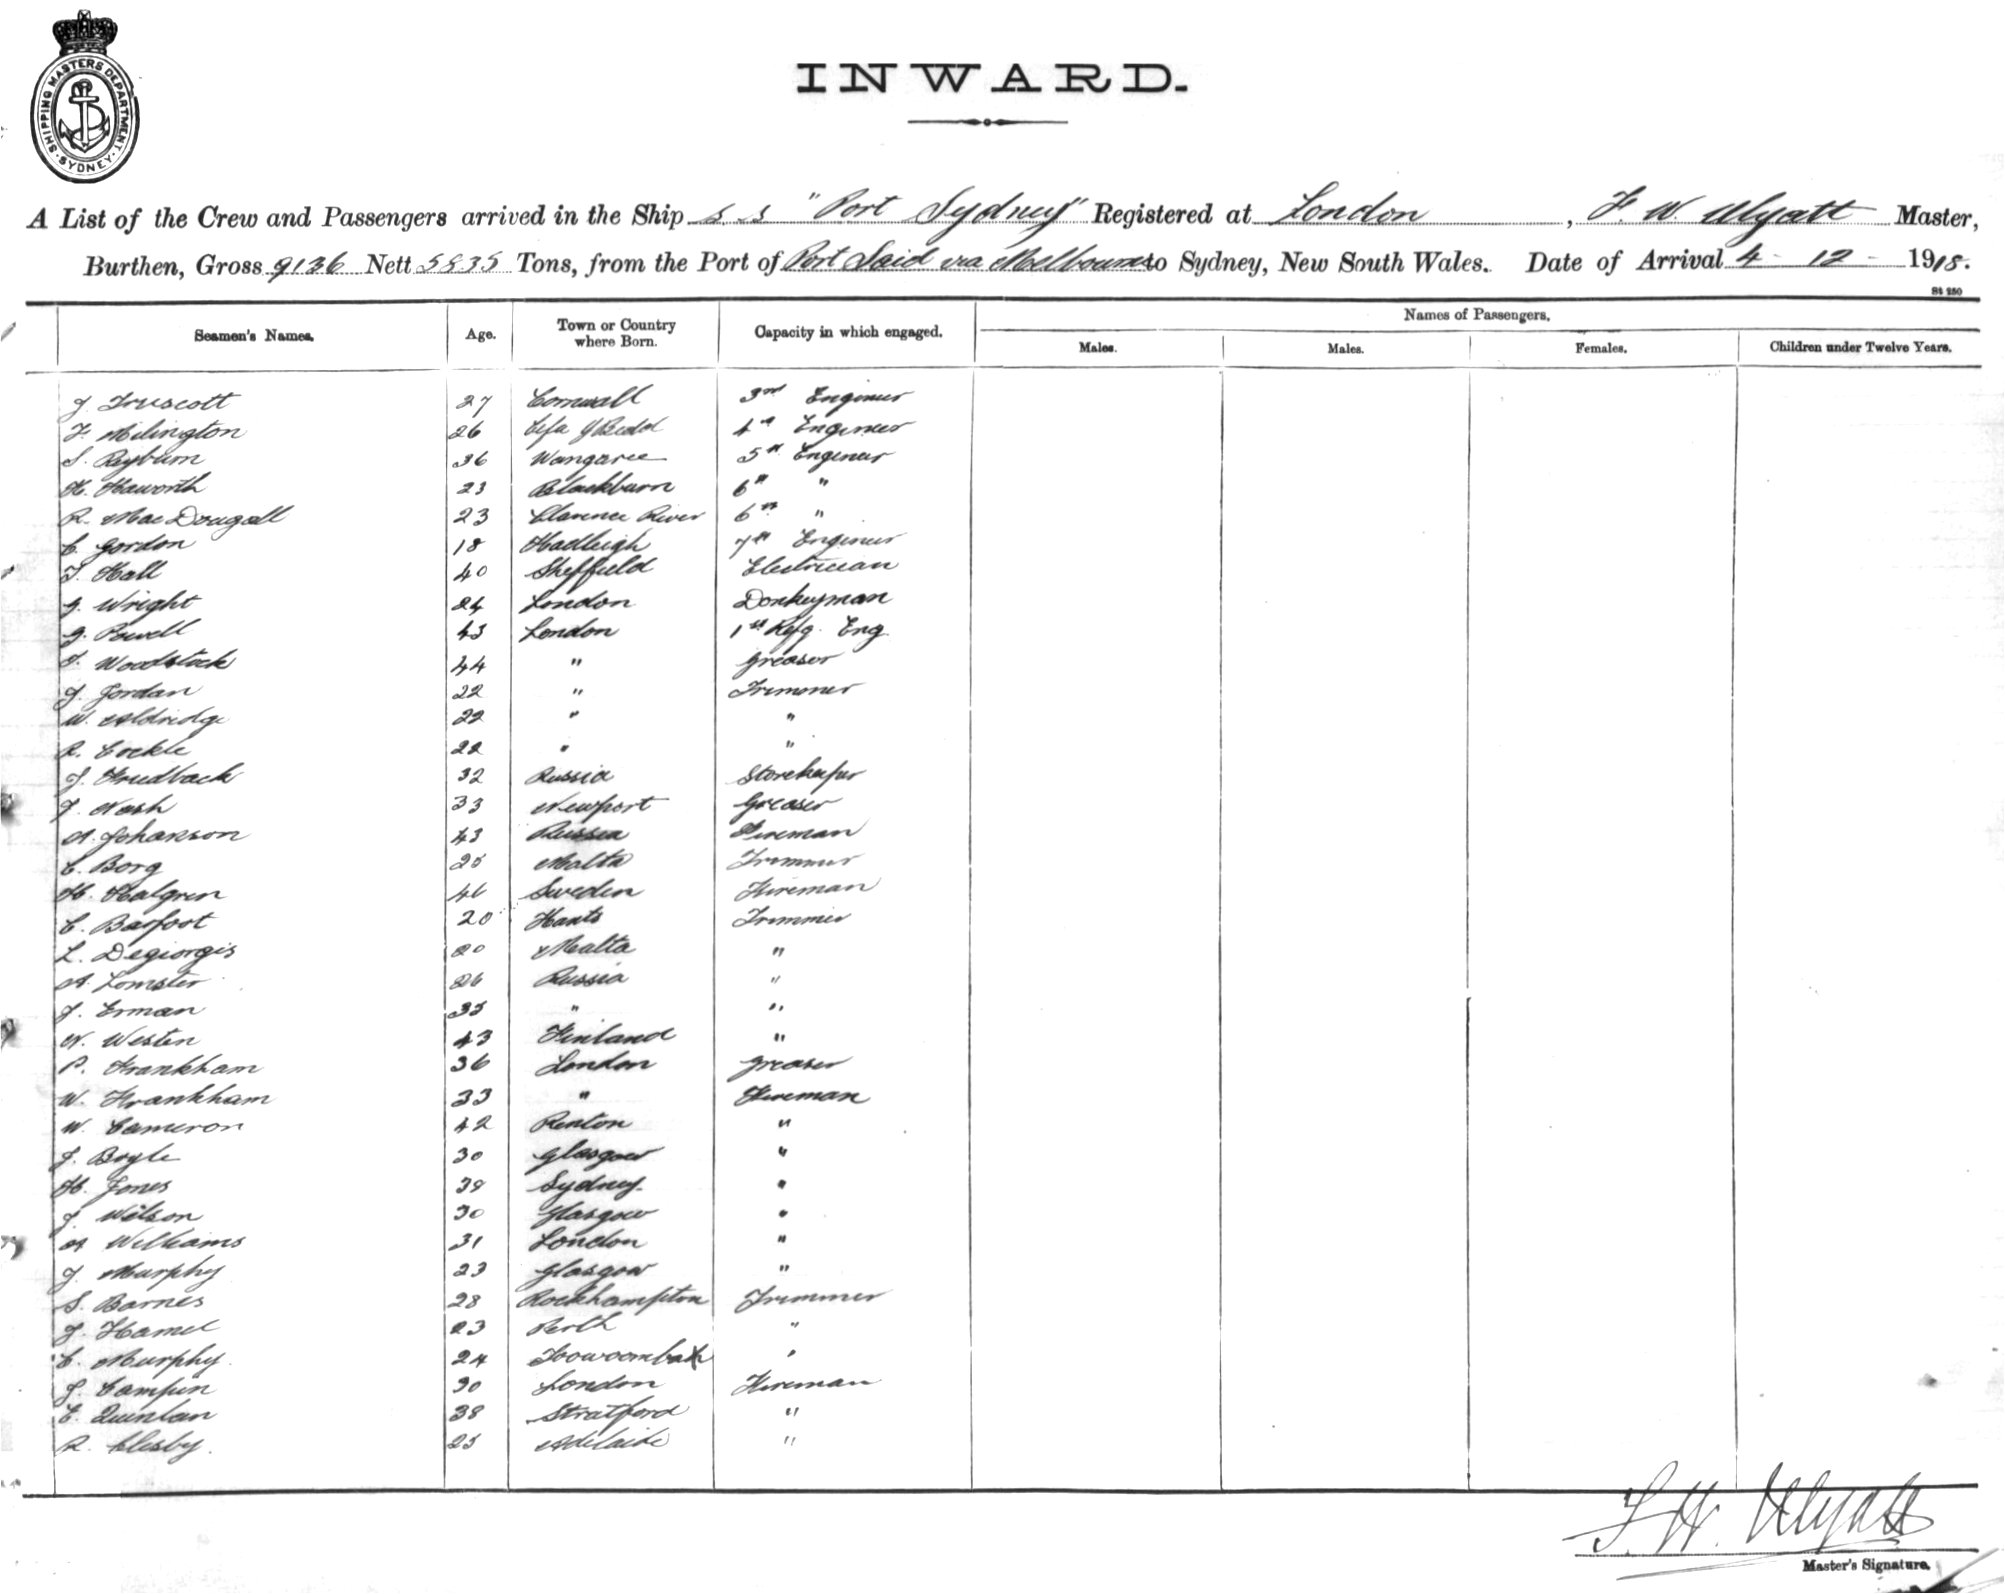 SHIPPING MASTERS DEPARTMENT · SYDNEY ·
INWARD.
A List of the Crew and Passengers arrived in the Ship s.s "Port Sydney" Registered at London, F. W. Wyatt Master,
Burthen, Gross 9136 Nett 5835 Tons, from the Port of Port Said via Melbourne to Sydney, New South Wales. Date of Arrival 4 - 12 - 1918.
St 250
Seamen's Names. Age. Town or Country where Born. Capacity in which engaged. Names of Passengers.
Males. Males. Females. Children under Twelve Years.
J. Truscott 27 Cornwall 3rd Engineer
F. Milington 26 4th Engineer
S. Reyburn 36 Wangaree 5th Engineer
H. Haworth 23 Blackburn 6th "
R. MacDougall 23 Clarence River 6th "
C. Gordon 18 Hadleigh 7th Engineer
T. Hall 40 Sheffield Electrician
G. Wright 24 London Donkeyman
G. Powell 43 London 1st Refg. Eng.
J. Woodstock 44 " Greaser
J. Jordan 22 " Trimmer
W. Aldridge 22 " "
R. Cockle 22 " "
J. Friedback 32 Russia Storekeeper
J. Nash 33 Newport Greaser
A. Johanson 43 Russia Fireman
C. Borg 25 Malta Trimmer
H. Halgren 46 Sweden Fireman
C. Barfoot 20 Hants Trimmer
L. Degiorgis 20 Malta "
A. Lomster 26 Russia "
J. Erman 35 " "
N. Westen 43 Finland "
P. Frankham 36 London Greaser
W. Frankham 33 " Fireman
W. Cameron 42 Renton "
J. Boyle 30 Glasgow "
H. Jones 38 Sydney. "
J. Wilson 30 Glasgow "
A Williams 31 London "
J. Murphy 23 Glasgow "
S. Barnes 28 Rockhampton Trimmer
J. Hamel 23 Perth "
C. Murphy. 24 Toowoomba "
J. Campin 30 London Fireman
C. Quinlan 38 Stratford "
R. Clesby. 25 Adelaide "
F. W. Wyatt
Master's Signature.